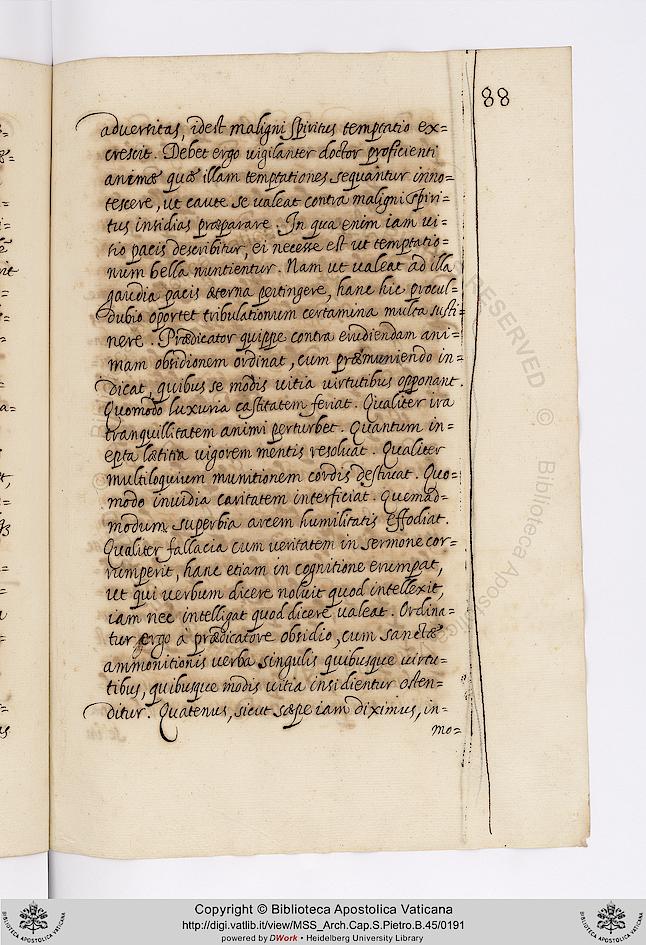 88
adversitas, idest maligni spiritus temptatio ex=
crescit. Debet ergo vigilanter doctor proficienti
animæ quæ illam temptationes sequantur inno=
tescere, ut caute se valeat contra maligni spiri=
tus insidias præparare. In qua enim iam vi=
sio pacis describitur, ei necesse est ut temptatio=
num bella nuntientur. Nam ut valeat ad illa
gaudia pacis æterna pertingere, hanc hic procul=
dubio oportet tribulationum certamina multa susti=
nere. Prædicator quippe contra erudiendam ani=
mam obsidionem ordinat, cum præmuniendo in=
dicat, quibus se modis vitia virtutibus opponant.
Quomodo luxuria castitatem feriat. Qualiter ira
tranquillitatem animi perturbet. Quantum in=
epta lætitia vigorem mentis resolvat. Qualiter
multiloquium munitionem cordis destruat. Quo=
modo invidia caritatem interficiat. Quemad=
modum superbia arcem humilitatis effodiat.
Qualiter fallacia cum veritatem in sermone cor=
rumperit, hanc etiam in cognitione erumpat,
ut qui verbum dicere noluit quod intellexit,
iam nec intelligat quod dicere valeat. Ordina=
tur ergo à prædicatore obsidio, cum sanctæ
ammonitionis verba singulis quibusque virtu=
tibus, quibusque modis vitia insidientur osten=
ditur. Quatenus, sicut sæpe iam diximus, in=
mo=
RESERVED © Biblioteca Apostolica
Copyright © Biblioteca Apostolica Vaticana
http://digi.vatlib.it/view/MSS_Arch.Cap.S.Pietro.B.45/0191
powered by DWork • Heidelberg University Library